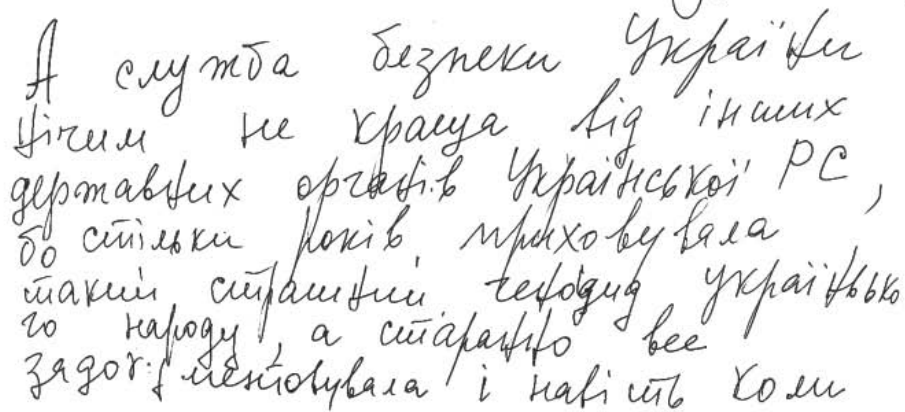 А служба безпеки України
нічим не краща від інших
державних органів Української РС,
бо стільки років приховувала
такий страшний геноцид українсько
го народу, а старанно все
задокументовувала і навіть коли